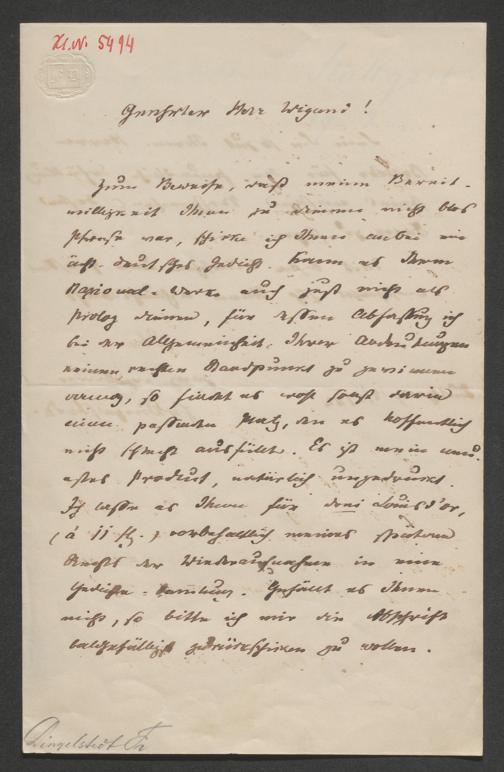 Xl. N. 5494
Geehrter Herr Wigand!
Zum Beweise, daß meine Bereit-
willigkeit Ihnen zu dienen nicht blos
Phrase war, schicke ich Ihnen anbei ein
ächt-deutsches Gedicht. Kann es Ihrem
National-Werke auch just nicht als
Prolog dienen, für dessen Abfassung ich
bei der Allgemeinheit Ihrer Andeutungen
keinen rechten Standpunkt zu gewinnen
vermag, so findet es wohl sonst darin
einen passenden Platz, den es hoffentlich
nicht schlecht ausfüllt. Es ist mein neu-
estes Product, natürlich ungedruckt.
Ich lasse es Ihnen für drei Louisd'or,
(à 11 fl.) vorbehaltlich meines spätern
Rechts der Wiederaufnahme in eine
Gedichte-Sammlung. Gefällt es Ihnen
nicht, so bitte ich mir die Abschrift
baldgefälligst zurückschicken zu wollen.
Dingelstedt Fr